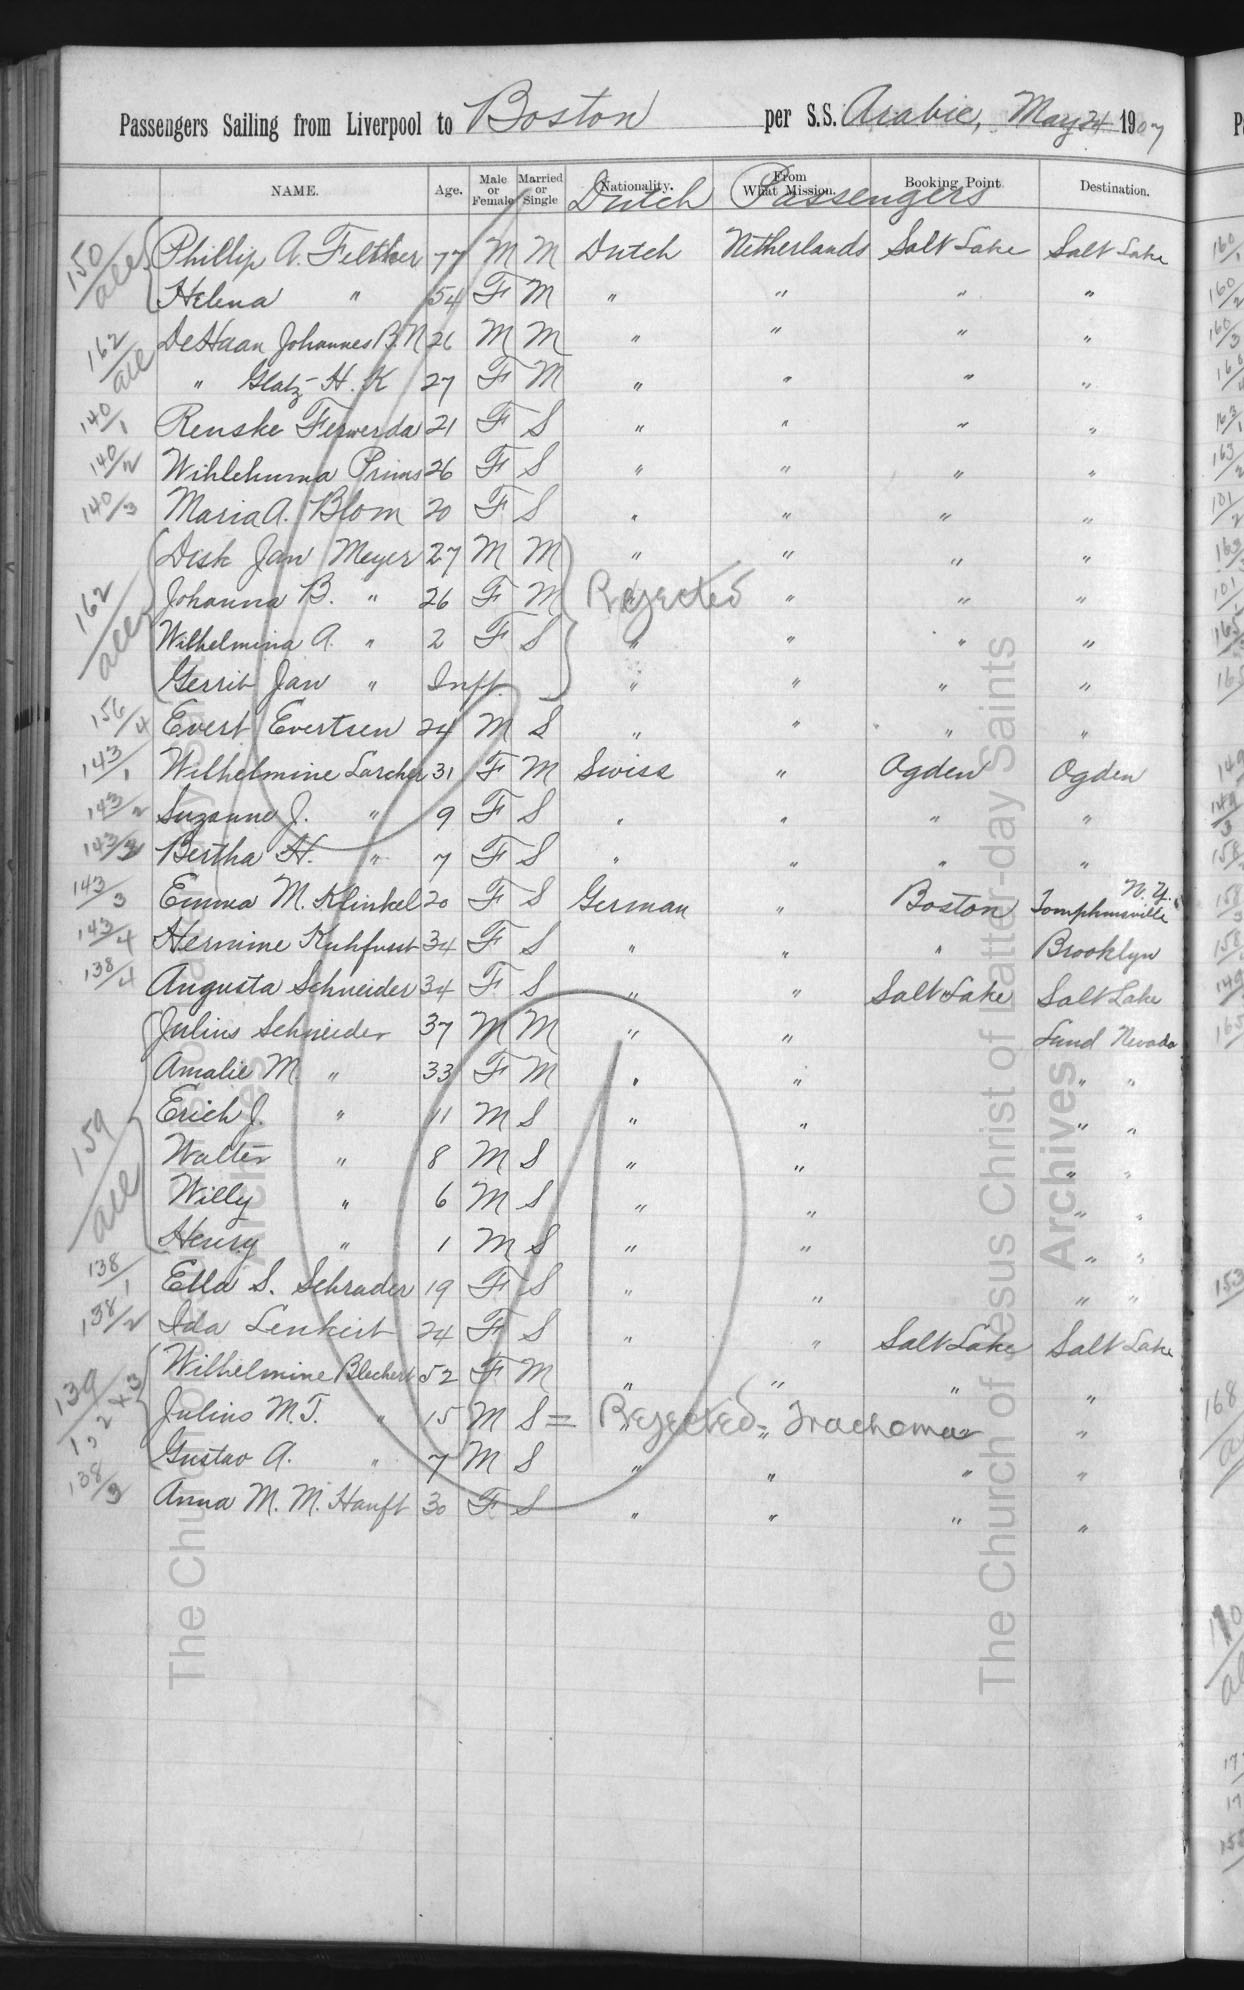 Passengers Sailing from Liverpool to Boston per S.S. Arabic, May 24 1907
NAME. Age. Male or Female Married or Single Nationality. From What Mission. Booking Point Destination.
Dutch Passengers
150/all Phillip A. Feltker 77 M M Dutch Netherlands Salt Lake Salt Lake
Helena " 54 F M " " " "
162/all DeHaan Johannes B. N 26 M M " " " "
" Glatz - H. K 27 F M " " " "
140/1 Renske Ferwerda 21 F S " " " "
140/2 Wihlehuma Prins 26 F S " " " "
140/3 Maria A. Blom 20 F S " " " "
Disk Jan Meyer 27 M M " " " "
162/all Johanna B. " 26 F M Rejected " " "
Wilhelmina A. " 2 F S " " " "
Gerrit Jan " Inft. " " " "
156/4 Evert Evertsen 24 M S " " " "
143/1 Wilhelmine Larcher 31 F M Swiss " Ogden Ogden
143/2 Suzanne J. " 9 F S " " " "
143/3 Bertha H. " 7 F S " " " "
143/3 Emma M. Klinkel 20 F S German " Boston Tomphinsville N.Y.
143/4 Hermine Kuhfusst 34 F S " " " Brooklyn
138/4 Augusta Schneider 34 F S " " Salt Lake Salt Lake
Julius Schneider 37 M M " " Lund Nevada
Amalie M. " 33 F M " " " "
Erich J. " 11 M S " " " "
159/all Walter " 8 M S " " " "
Willy " 6 M S " " " "
Henry " 1 M S " " " "
138/1 Ella S. Schrader 19 F S " " " "
138/2 Ida Lenkeit 24 F S " " Salt Lake Salt Lake
139/1, 2 + 3 Wilhelmine Blechert 52 F M " " " "
Julius M.T. " 15 M S = Rejected - Trachoma "
Gustav A. " 7 M S " " " "
138/3 Anna M. M. Hanft 30 F S " " " "
The Church of Jesus Christ of Latter-day Saints
Archives